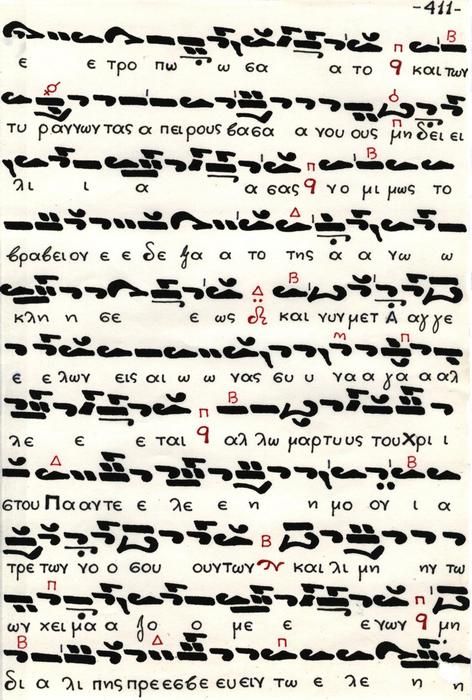 -411-
ε ε τρο πω ω σα α το q και των
τυ ραννων τας α πειρους βασα α νου ους μη δει ει
λι ι α α σας q νο μι μως το
βραβειον ε ε δε ξα α το της α α νω ω
κλη η σε ε ως και νυν μετ Α αγ γε
ε ε λων εις αι ω ω νας ευ υ να α γα α αλ
λε ε ε ται q αλ λω μαρτυ υς του Χρι ι
στου Πα αν τε ε λε ε η η μο ον ι α
τρε των νο ο σου ουντων και λι μη ην τω
ων χει μα α ζο ο με ε ε νων q μη
δι α λι πης πρε εσβε ευειν τω ε λε η η